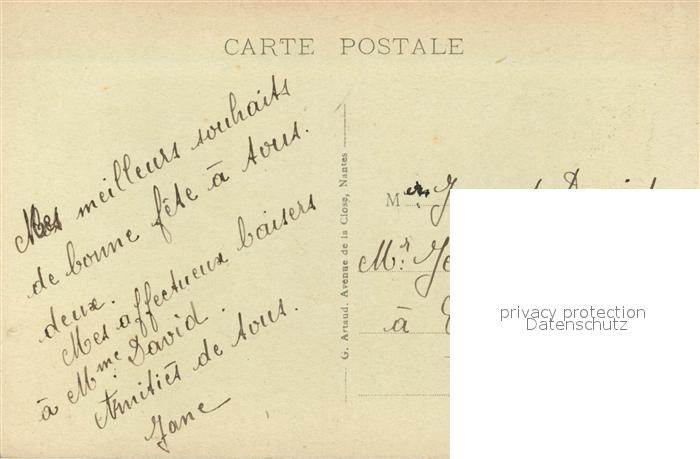 CARTE POSTALE
Mes meilleurs souhaits
de bonne fête à vous
deux.
Mes affectueux baisers
à Mme David.
Amitiés de tous.
Jane
G. Artaud. Avenue de la Close, Nantes
M
Mr.
à
privacy protection
Datenschutz